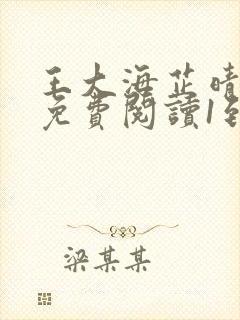 王大海芷晴
免費閱讀1到
梁某某